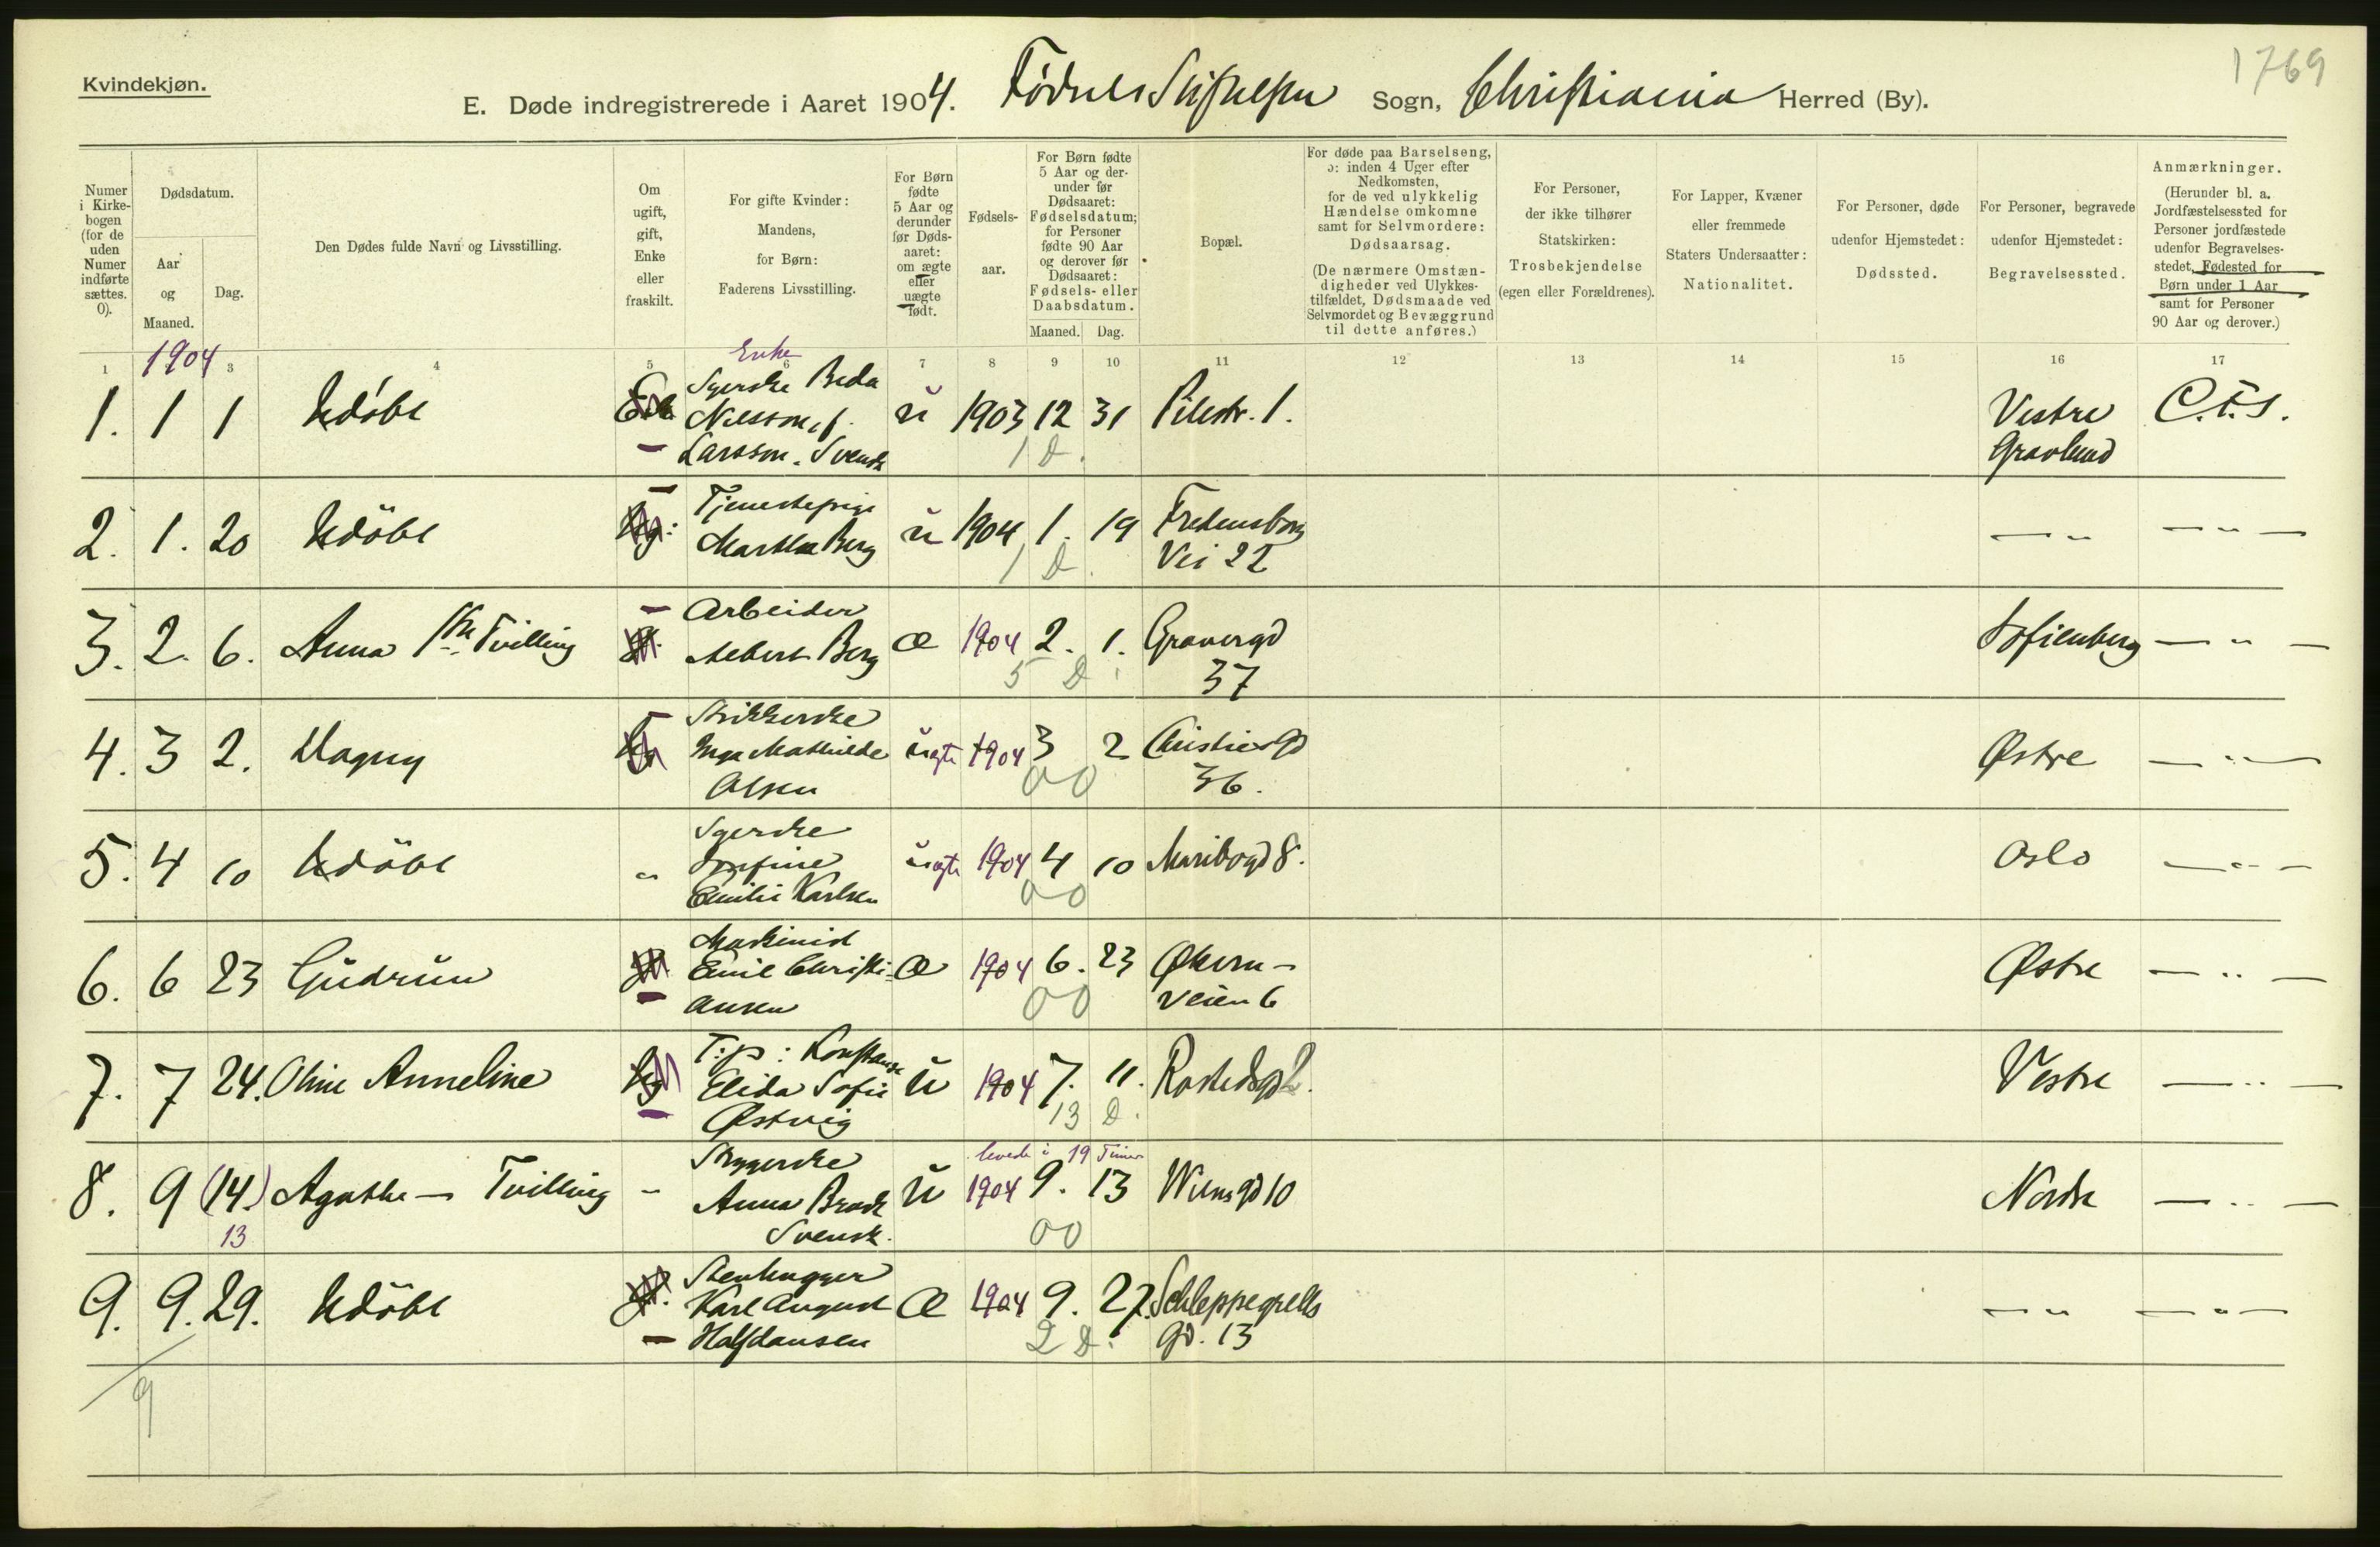 Kvindekjøn.
1769
E. Døde indregistrerede i Aaret 1904. Fødsels Stiftelsen Sogn, Christiania Herred (By).
Numer i Kirke-bogen (for de uden Numer indførte sættes. 0).
Dødsdatum.
Aar og Maaned.
Dag.
Den Dødes fulde Navn og Livsstilling.
Om ugift, gift, Enke eller fraskilt.
For gifte Kvinder: Mandens, for Børn: Faderens Livsstilling.
For Børn fødte 5 Aar og derunder før Døds-aaret: om ægte eller uægte født.
Fødsels-aar.
For Børn fødte 5 Aar og der-under før Dødsaaret: Fødselsdatum; for Personer fødte 90 Aar og derover før Dødsaaret: Fødsels- eller Daabsdatum.
Maaned. Dag.
Bopæl.
For døde paa Barselseng, ɔ: inden 4 Uger efter Nedkomsten, for de ved ulykkelig Hændelse omkomne samt for Selvmordere: Dødsaarsag. (De nærmere Omstæn-digheder ved Ulykkes-tilfældet, Dødsmaade ved Selvmordet og Bevæggrund til dette anføres.)
For Personer, der ikke tilhører Statskirken: Trosbekjendelse (egen eller Forældrenes).
For Lapper, Kvæner eller fremmede Staters Undersaatter: Nationalitet.
For Personer, døde udenfor Hjemstedet: Dødssted.
For Personer, begravede udenfor Hjemstedet: Begravelsessted.
Anmærkninger. (Herunder bl. a. Jordfæstelsessted for Personer jordfæstede udenfor Begravelses-stedet, Fødested for Børn under 1 Aar samt for Personer 90 Aar og derover.)
1 1904 3 4 5 6 7 8 9 10 11 12 13 14 15 16 17
Enke
1. 1 1 Udøbt Syerske Beda Nilsson, f. Larsson. Svensk u 1903 12 31 Pilestr. 1. Vestre Gravlund
1 D.
2. 1. 20 Udöbt Tjenestepige Martha Berg u 1904 1. 19 Fredensborg Vei 22 — „
— „ —
1 D.
3. 2. 6. Anna 1ste Tvilling Arbeider Albert Berg Æ 1904 2. 1. Gravergd 37 Sofienberg — „ —
5 D.
4. 3 2. Dagny Strikkerske Inga Mathilde Olsen uægte 1904 3 2 Christiesgd 36. Østre — „ —
00
5. 4 10 Udöbt „ Syerske Josefine Emilie Karlsen uægte 1904 4 10 Maribogd 8. Oslo — „ —
00
6. 6 23 Gudrun Maskinist Emil Christi-ansen Æ 1904 6. 23 Økern-veien 6 Østre — „ —
00
7. 7 24. Oline Anneline T:p: Konstanse Elida Sofie Østvig u 1904 7. 11. Rostedsgd 2. Vestre — „ —
13 D.
levede i 19 Timer
8. 9 (14.) Agathe — Tvilling - Strygerske Anna Brask Svensk. u 1904 9. 13 Wiensgd 10 Nordre — „ —
13
00
9. 9. 29. Udöbt Stenhugger Karl August Halfdansen Æ 1904 9. 27. Schleppegrells gd. 13 — „
— „ —
2 D.
9